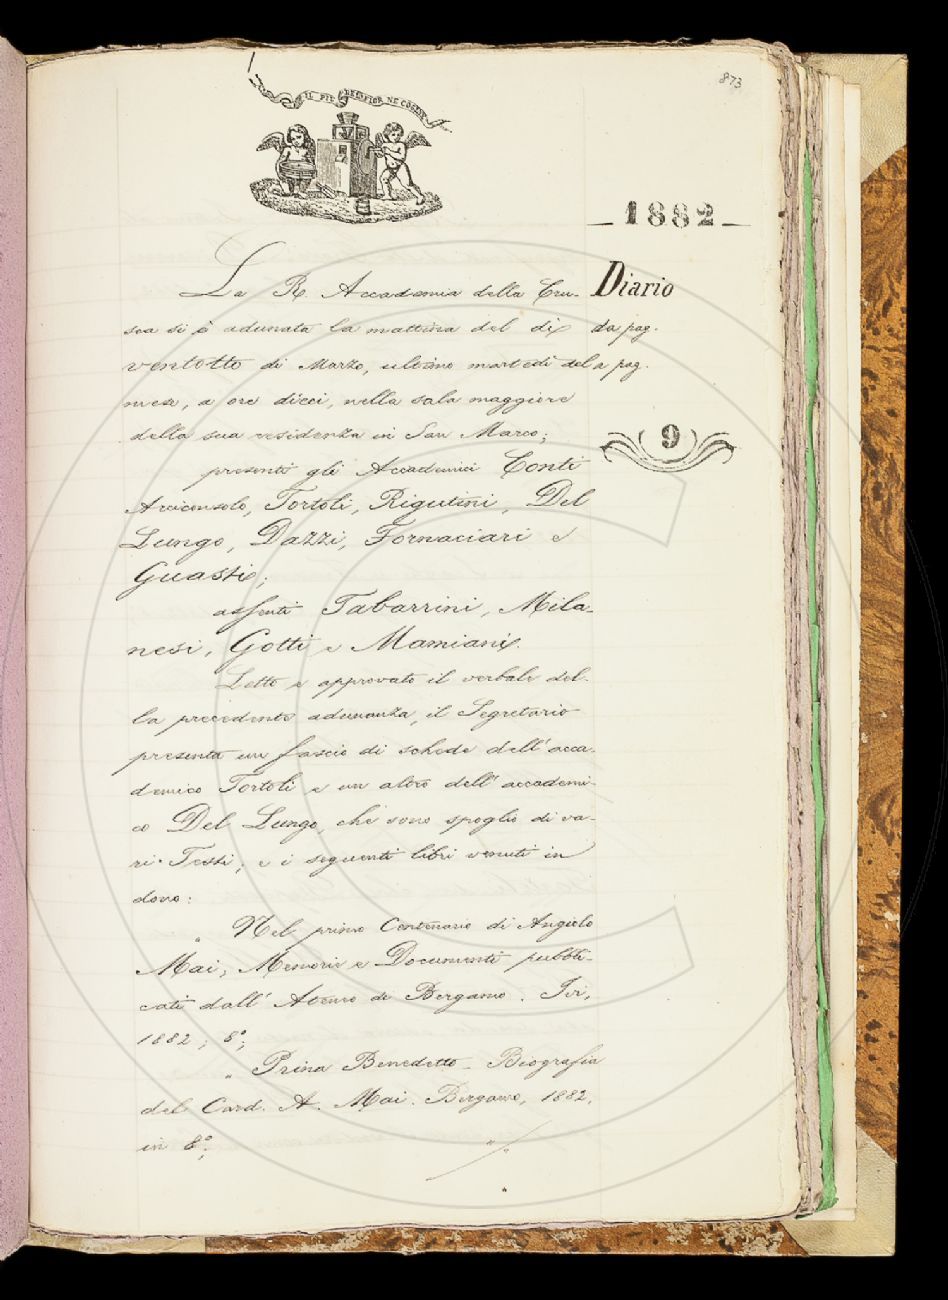 873
IL PIÙ BEL FIOR NE COGLIE
1882
Diario
da pag.
a pag.
9
La R. Accademia della Cru-
sca si è adunata la mattina del dì
ventotto di Marzo, ultimo martedì del
mese, a ore dieci, nella sala maggiore
della sua residenza in San Marco;
presenti gli Accademici Conti
Arciconsolo, Tortoli, Rigutini, Del
Lungo, Dazzi, Fornaciari e
Guasti;
assenti Tabarrini, Mila-
nesi, Gotti e Mamiani.
Letto e approvato il verbale del-
la precedente adunanza, il Segretario
presenta un fascio di schede dell'acca-
demico Tortoli e un altro dell'accademi-
co Del Lungo, che sono spoglio di va-
ri Testi; e i seguenti libri venuti in
dono:
" Nel primo Centenario di Angiolo
Mai, Memorie e Documenti pubbli-
cati dall'Ateneo di Bergamo. Ivi,
1882; 8°;
" Prina Benedetto - Biografia
del Card. A. Mai. Bergamo, 1882,
in 8°;